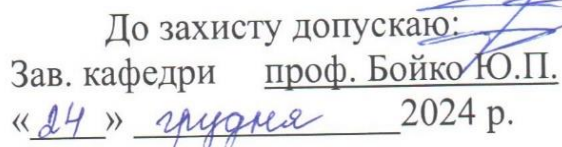 До захисту допускаю:
Зав. кафедри проф. Бойко Ю.П.
«24» грудня 2024 р.